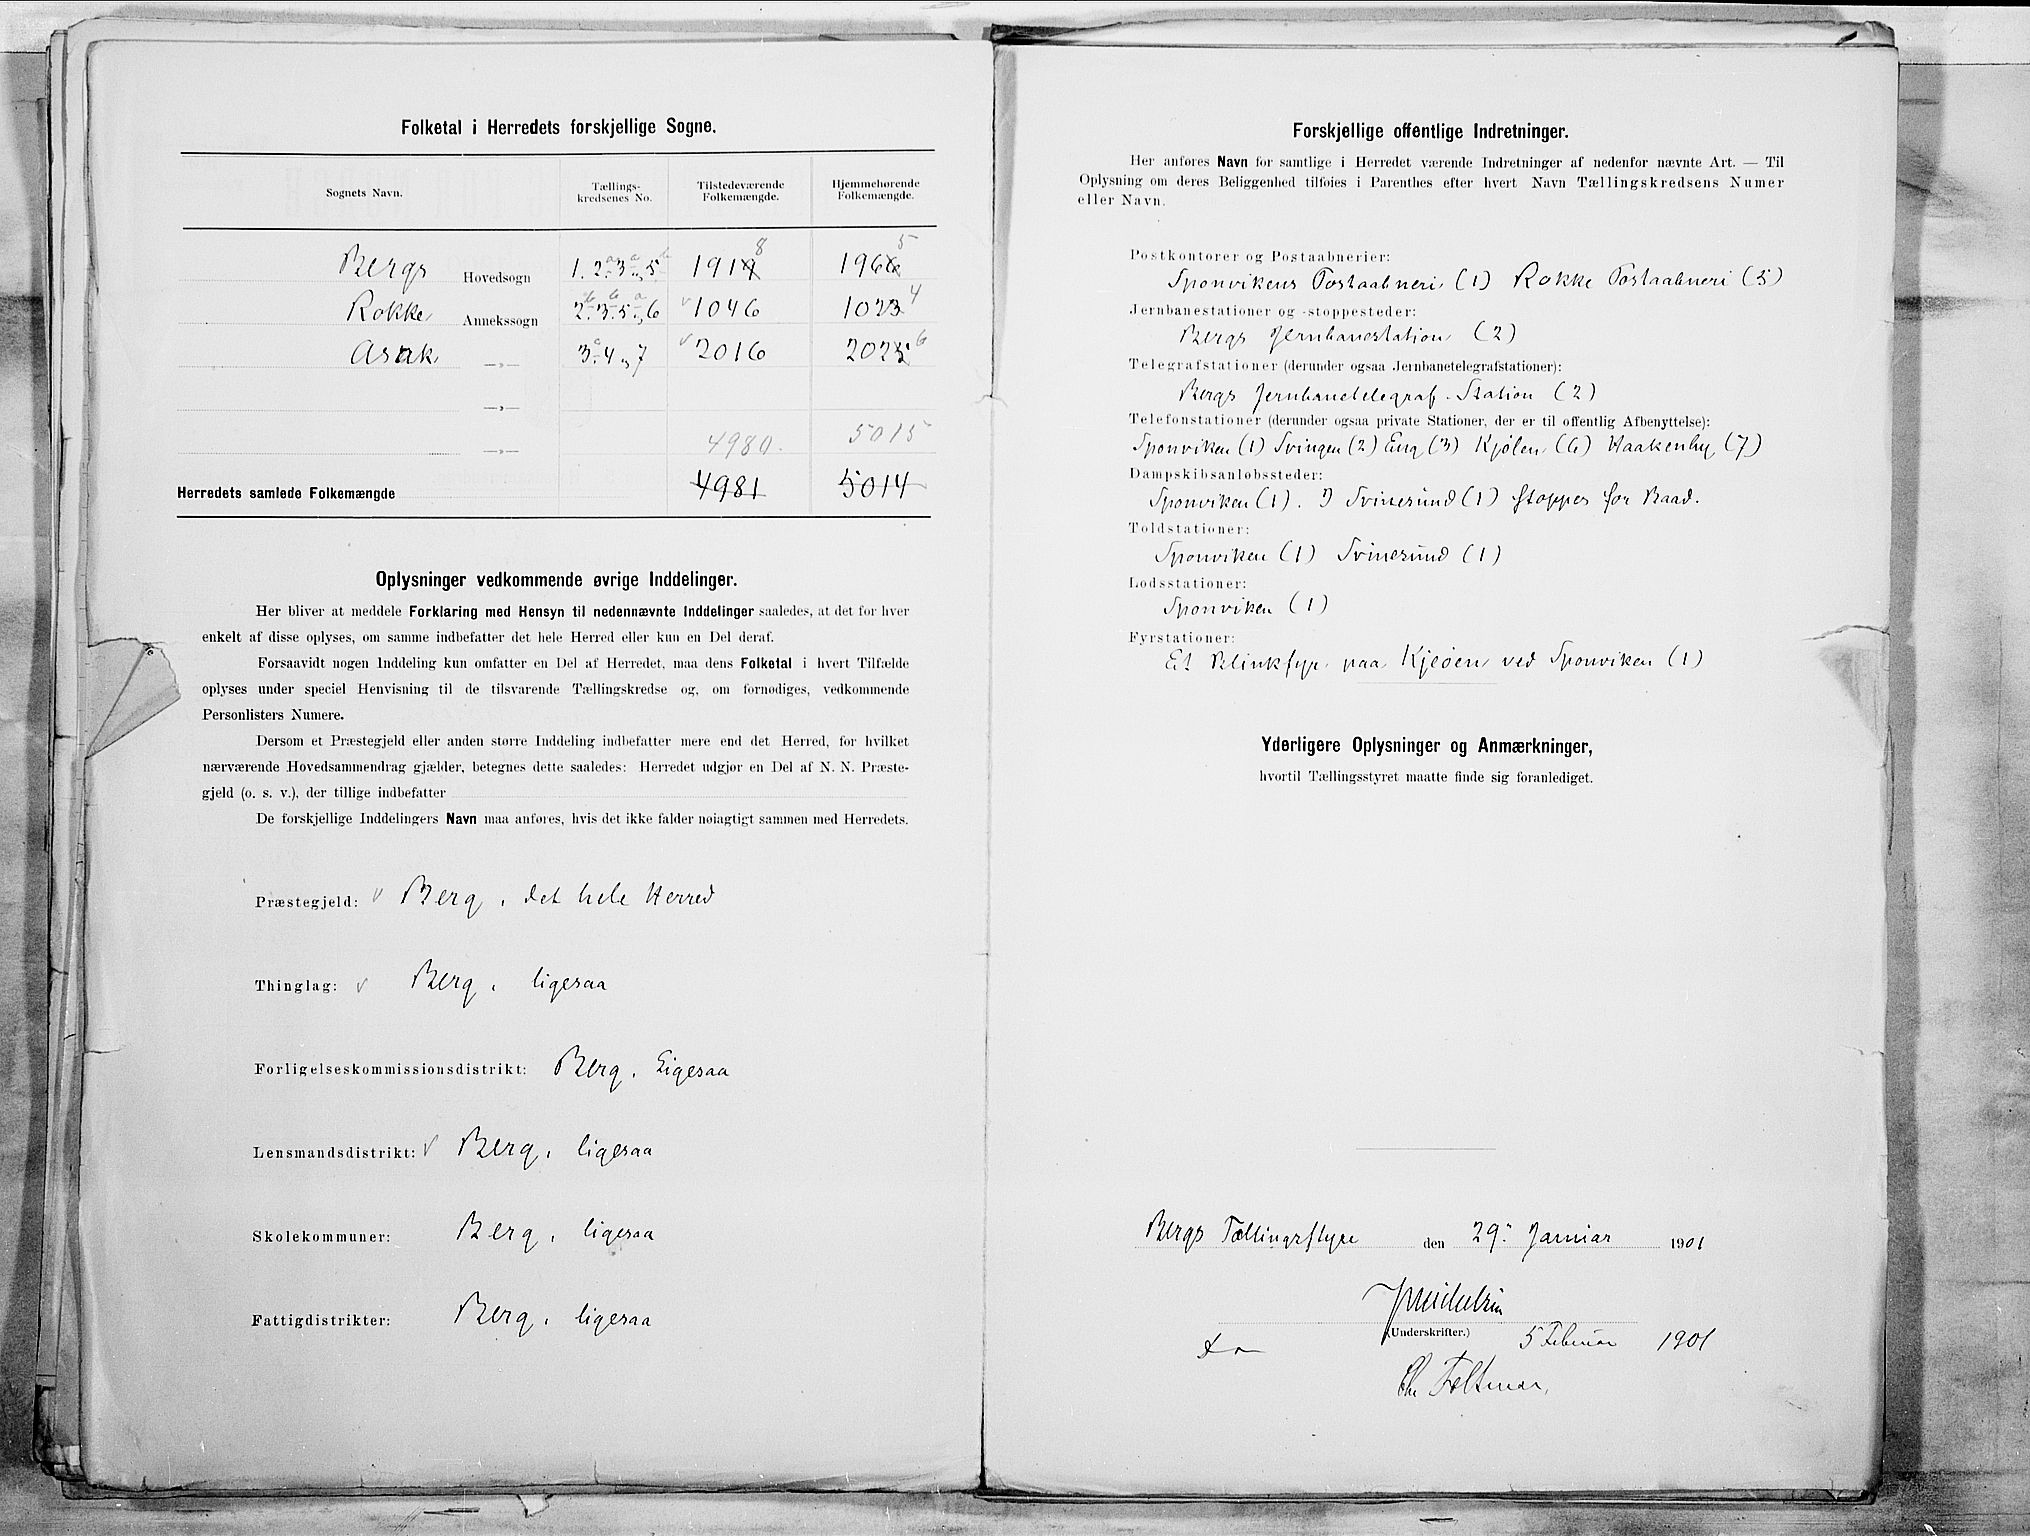 Folketal i Herredets forskjellige Sogne.
Sognets Navn. Tællings-kredsenes No. Tilstedeværende Folkemængde. Hjemmehørende Folkemængde.
Bergs Hovedsogn 1. 2a 3a 5b 1919 8 1966 5
Rokke Annekssogn 2b 3b 5a 6 1046 1023 4
Asak —„— 3c 4 „ 7 2016 2025 6
—„—
—„— 4980. 5015
Herredets samlede Folkemængde 4981 5014
Oplysninger vedkommende øvrige Inddelinger.
Her bliver at meddele Forklaring med Hensyn til nedennævnte Inddelinger saaledes, at det for hver
enkelt af disse oplyses, om samme indbefatter det hele Herred eller kun en Del deraf.
Forsaavidt nogen Inddeling kun omfatter en Del af Herredet, maa dens Folketal i hvert Tilfælde
oplyses under speciel Henvisning til de tilsvarende Tællingskredse og, om fornødiges, vedkommende
Personlisters Numere.
Dersom et Præstegjeld eller anden større Inddeling indbefatter mere end det Herred, for hvilket
nærværende Hovedsammendrag gjælder, betegnes dette saaledes: Herredet udgjør en Del af N. N. Præste-
gjeld (o. s. v.), der tillige indbefatter
De forskjellige Inddelingers Navn maa anføres, hvis det ikke falder nøiagtigt sammen med Herredets.
Præstegjeld: Berg, det hele Herred
Thinglag: Berg, ligesaa
Forligelseskommissionsdistrikt: Berg, Ligesaa
Lensmandsdistrikt: Berg, ligesaa
Skolekommuner: Berg, ligesaa
Fattigdistrikter: Berg, ligesaa
Forskjellige offentlige Indretninger.
Her anføres Navn for samtlige i Herredet værende Indretninger af nedenfor nævnte Art. — Til
Oplysning om deres Beliggenhed tilføies i Parenthes efter hvert Navn Tællingskredsens Numer
eller Navn.
Postkontorer og Postaabnerier:
Sponvikens Postaabneri (1) Rokke Postaabneri (5)
Jernbanestationer og -stoppesteder:
Bergs Jernbanestation (2)
Telegrafstationer (derunder ogsaa Jernbanetelegrafstationer):
Bergs Jernbanetelegraf-Station (2)
Telefonstationer (derunder ogsaa private Stationer, der er til offentlig Afbenyttelse):
Sponviken (1) Svingen (2) Eng (3) Kjølen (6) Haakenby (7)
Dampskibsanløbssteder:
Sponviken (1). I Svinesund (1) stoppes for Baad.
Toldstationer:
Sponviken (1) Svinesund (1)
Lodsstationer:
Sponviken (1)
Fyrstationer:
Et Blinkfyr paa Kjeøen ved Sponviken (1)
Yderligere Oplysninger og Anmærkninger,
hvortil Tællingsstyret maatte finde sig foranlediget.
Bergs Tællingsstyre den 29. Januar 1901
(Underskrifter.)
5 Februar 1901